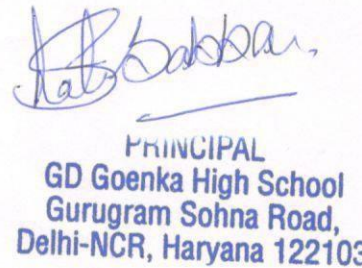 PRINCIPAL
GD Goenka High School
Gurugram Sohna Road,
Delhi-NCR, Haryana 122103